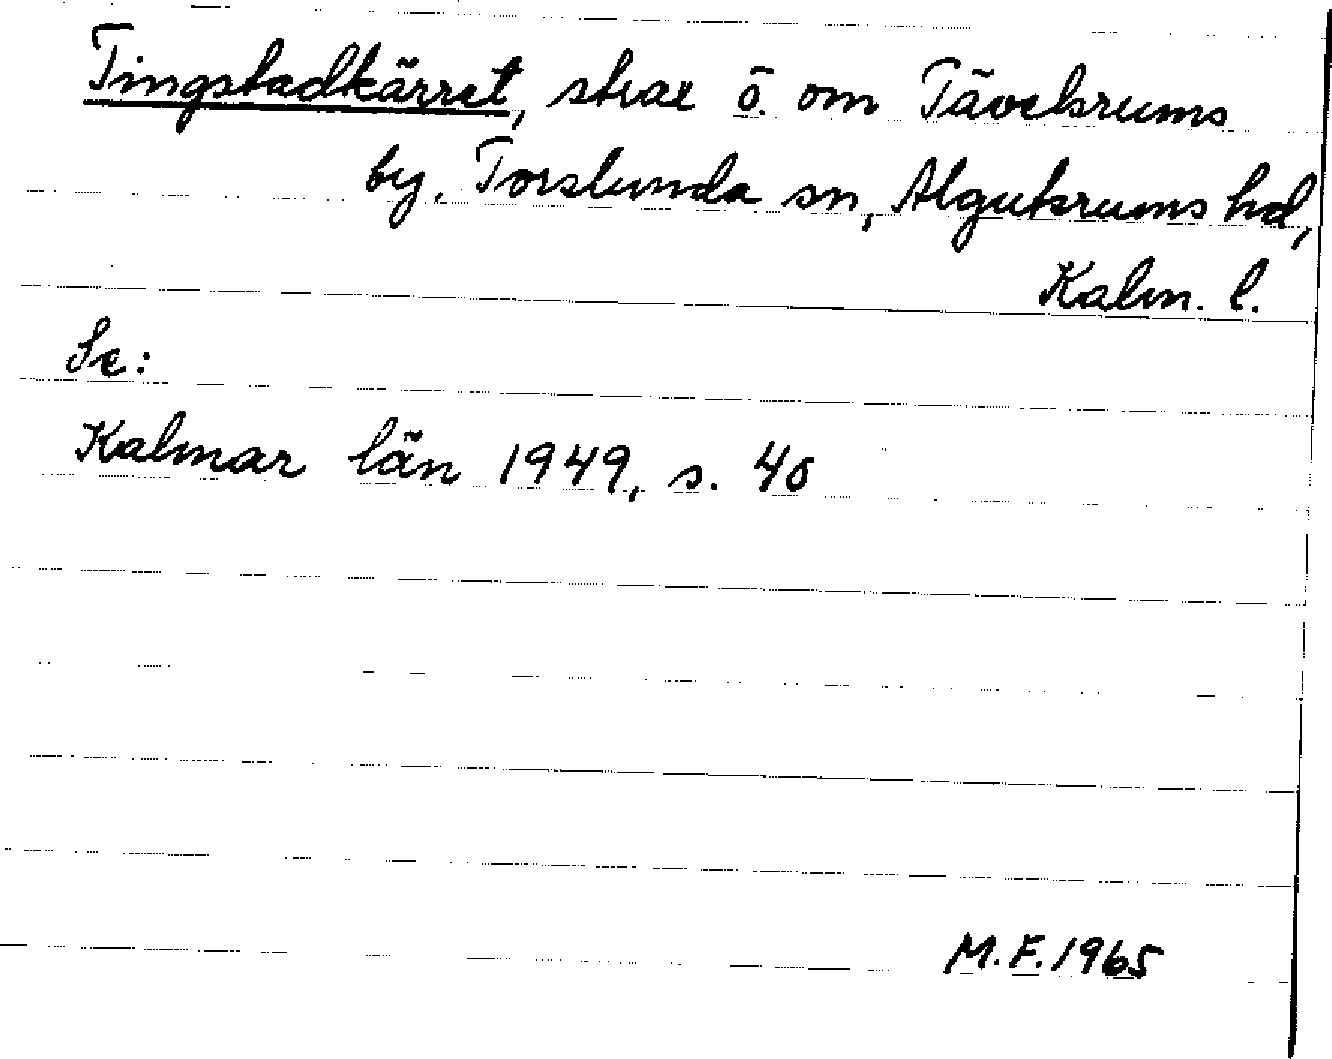 Tingstadkärret, strax ö. om Tävelsrums
by, Torslunda sn, Algutsrums hd,
Kalm. l.
Se:
Kalmar län 1949, s. 40
M.F. 1965